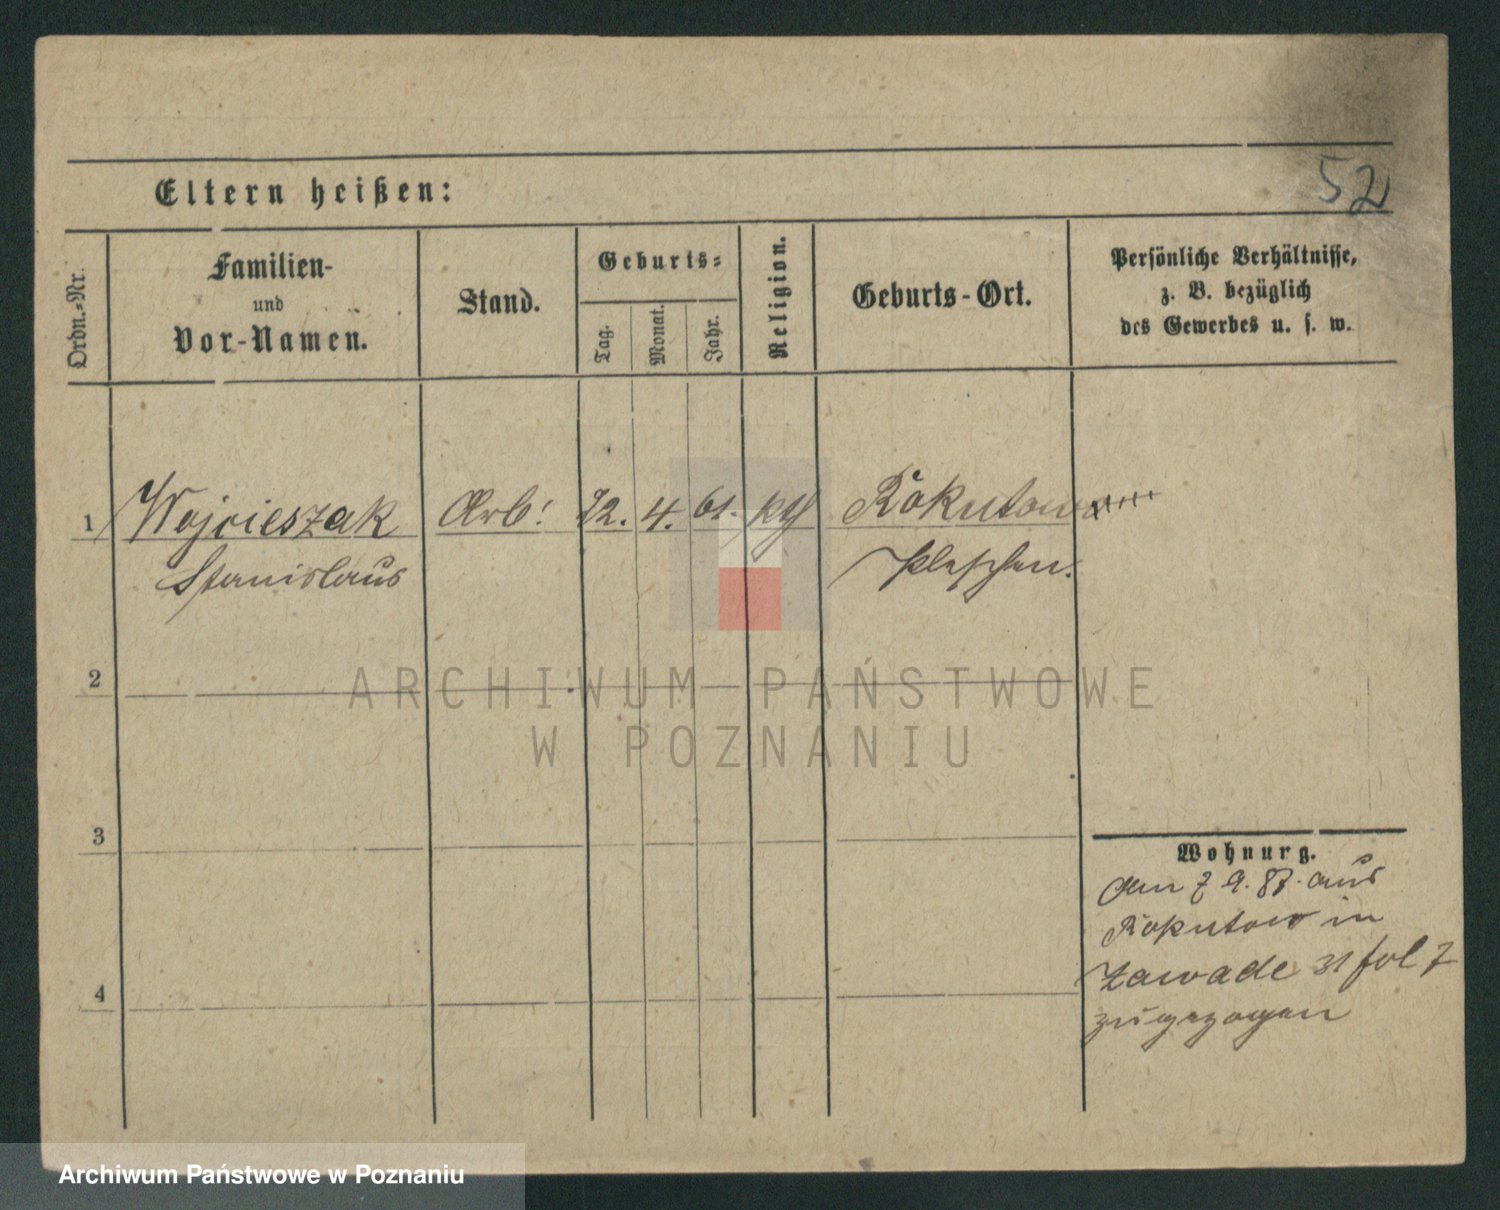 52
Eltern heißen:
Ordn.-Nr.
Familien-
und
Vor-Namen.
Stand.
Geburts-
Tag.
Monat.
Jahr.
Religion.
Geburts-Ort.
Persönliche Verhältnisse,
z. B. bezüglich
des Gewerbes u. s. w.
1 Wojcieszak Arb. 4. 61. Rokutow
Stanislaus Pleschen.
2
ARCHIWUM PAŃSTWOWE
W POZNANIU
3
Wohnung.
aus
Rokutow in
Zawade 31 fol 7
zugezogen
4
Archiwum Państwowe w Poznaniu